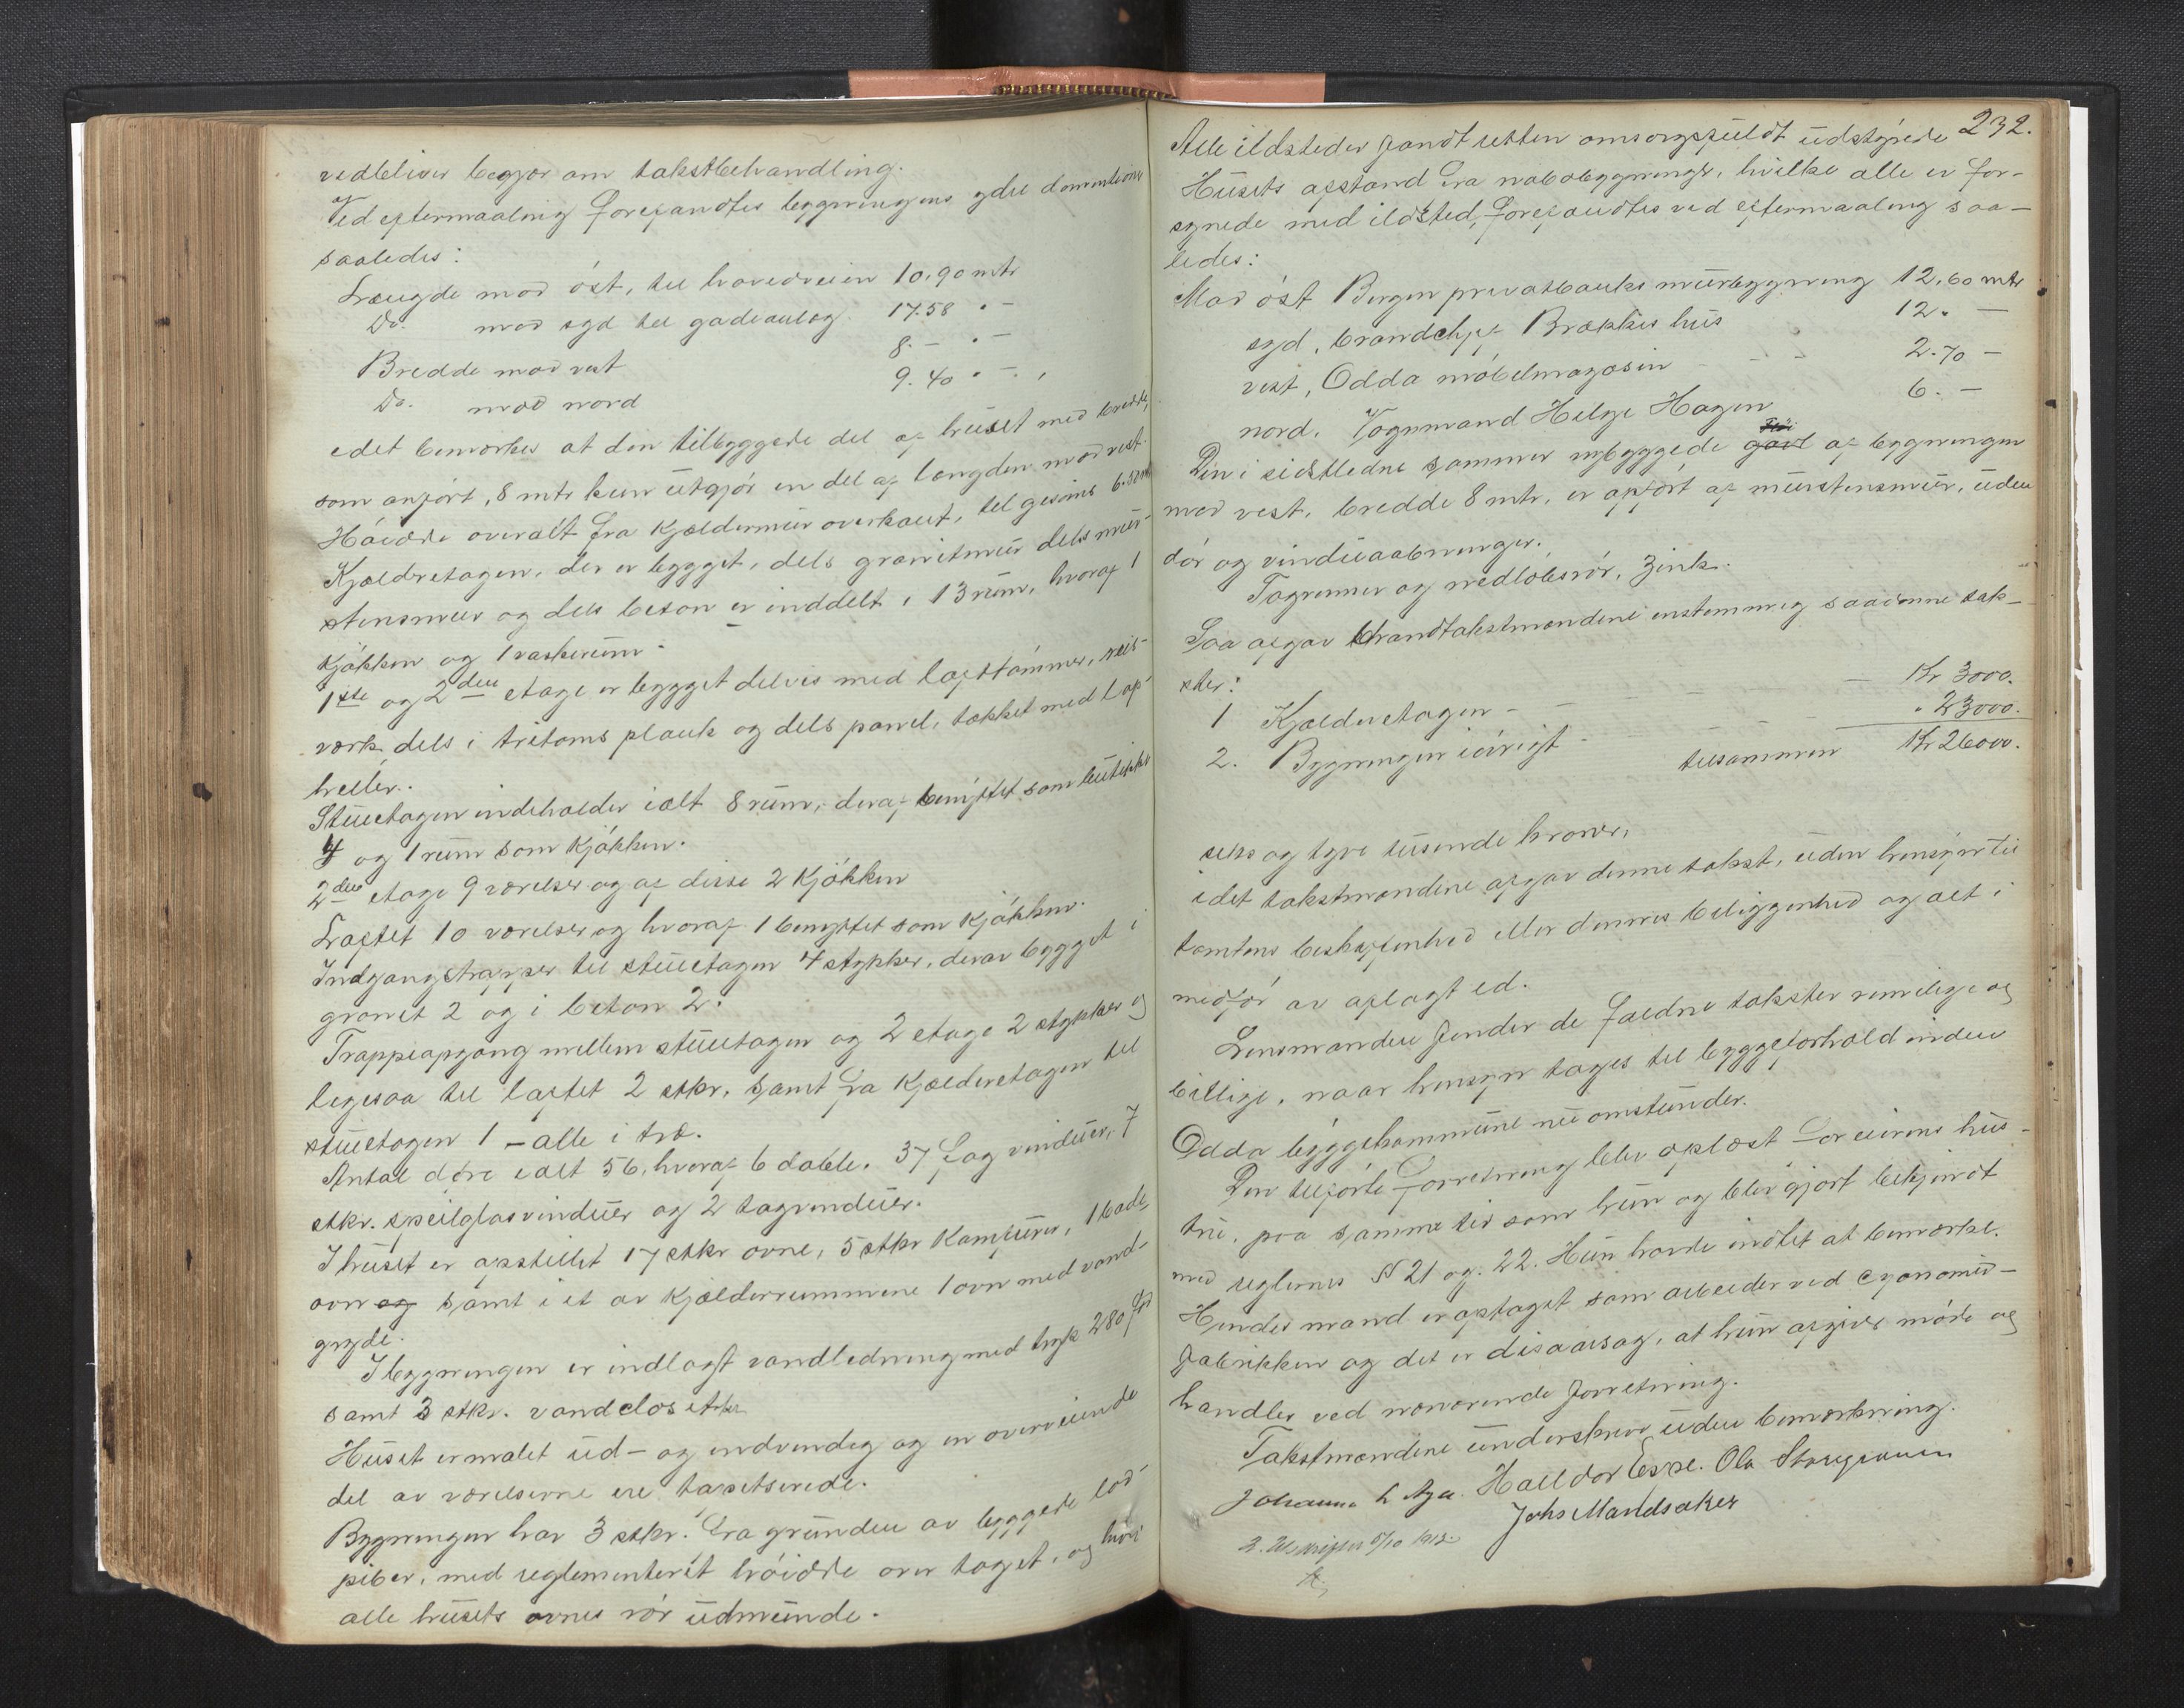 vedbliver begjær om takstbehandling.
Ved eftermaaling forefandtes bygningens ydre dimentioner
saaledes:
Længde mod øst, til hovedveien 10.90 mtr
Do. mod syd til gadeanlæg 17.58 " -
Bredde mod vest 8. - " -
Do. mod nord 9.40 " - ,
idet bemærkes at den tilbyggede del af huset med bredde,
som anført, 8 mtr kun utgjør en del af længden mod vest.
Høidde overalt fra kjældermur overkant, til gesims 6.50 m
Kjælderetagen, der er bygget, dels granitmur dels mur-
stensmur og dels beton er inddelt i 13 rum, hvoraf 1
kjøkken og 1 vaskerum.
1ste og 2den etage er bygget delvis med laftetømmer, reis-
værk dels i tretoms plank og dels panel, tækket med lap-
heller.
Stuetagen indeholder ialt 8 rum, deraf benyttet som butikker
4 og 1 rum som kjøkken.
2den etage 9 værelser og af disse 2 kjøkken
Loftet 10 værelser og hvoraf 1 benyttet som kjøkken.
Indgangstrapper til stuetagen 4 stykker, derav bygget i
granit 2 og i beton 2.
Trappeopgang mellem stuetagen og 2 etage 2 stykker og
ligesaa til loftet 2 stkr. samt fra kjælderetagen til
stuetagen 1 - alle i træ.
Antal døre ialt 56, hvoraf 6 doble. 37 fag vinduer, 7
stkr. speilglasvinduer og 2 tagvinduer.
I huset er opstillet 17 stkr ovne, 5 stkr Komfurer, 1 bade
ovn og samt i et av kjælderrummene 1 ovn med vand-
gryde.
I bygningen er indlagt vandledning med tryk 280 fod
samt 3 stkr. vandclosetter
Huset er malet ud- og indvendig og en overveiende
del av værelserne ere tapetserede.
Bygningen har 3 stkr. fra grunden av byggede lod-
piber, med reglementeret høidde over taget, og hvori
alle husets ovnes rør udmunde.
232.
Alle ildsteder fandt retten omsorgsfuldt udstyrede
Husets afstand fra nabobygninge, hvilke alle er for-
synede med ildsted, forefandtes ved eftermaaling saa-
ledes:
Mod øst Bergen privatbanks murbygning 12,60 mtr
syd, brandchef Brækkes hus 12. -
vest, Odda møbelmagasin 2.70 -
nord. Vognmand Helge Hagen 6. -
Den i sidstledne sommer nybyggede gavl af bygningen
mod vest, bredde 8 mtr, er opført af murstensmur, uden
dør og vinduaabninger.
Tagrenner og nedløbsrør, zink.
Saa afgav brandtakstmændene enstemmig saadanne tak-
ster:
1 Kjælderetagen - Kr 3000.
2. Bygningen iøvrigt - " 23000.
tilsammen Kr 26000.
seks og tyve tusende kroner,
idet takstmændene afgav denne takst, uden hensyn til
tomtens beskaffenhed eller dennes beliggenhed og alt i
medfør av aflagt ed.
Lensmanden finder de faldne takster rimelige og
billige, naar hensyn tages til byggeforhold inden
Odda byggekommune nu omstunder.
Den tilførte forretning blev oplæst for eierens hus-
tru, paa samme tid som hun og blev gjort bekjendt
med reglernes §§ 21 og. 22. Hun havde indtet at bemærke.
Hendes mand er optaget som arbeider ved cyanamid-
fabrikken og det er disaarsag, at hun afgiver møde og
handler ved nærværende forretning.
Takstmændene underskrev uden bemærkning.
Johanna Halldor Espe. Ola
Johs Mandsaker
2. Udskrifter 5/10 1912.